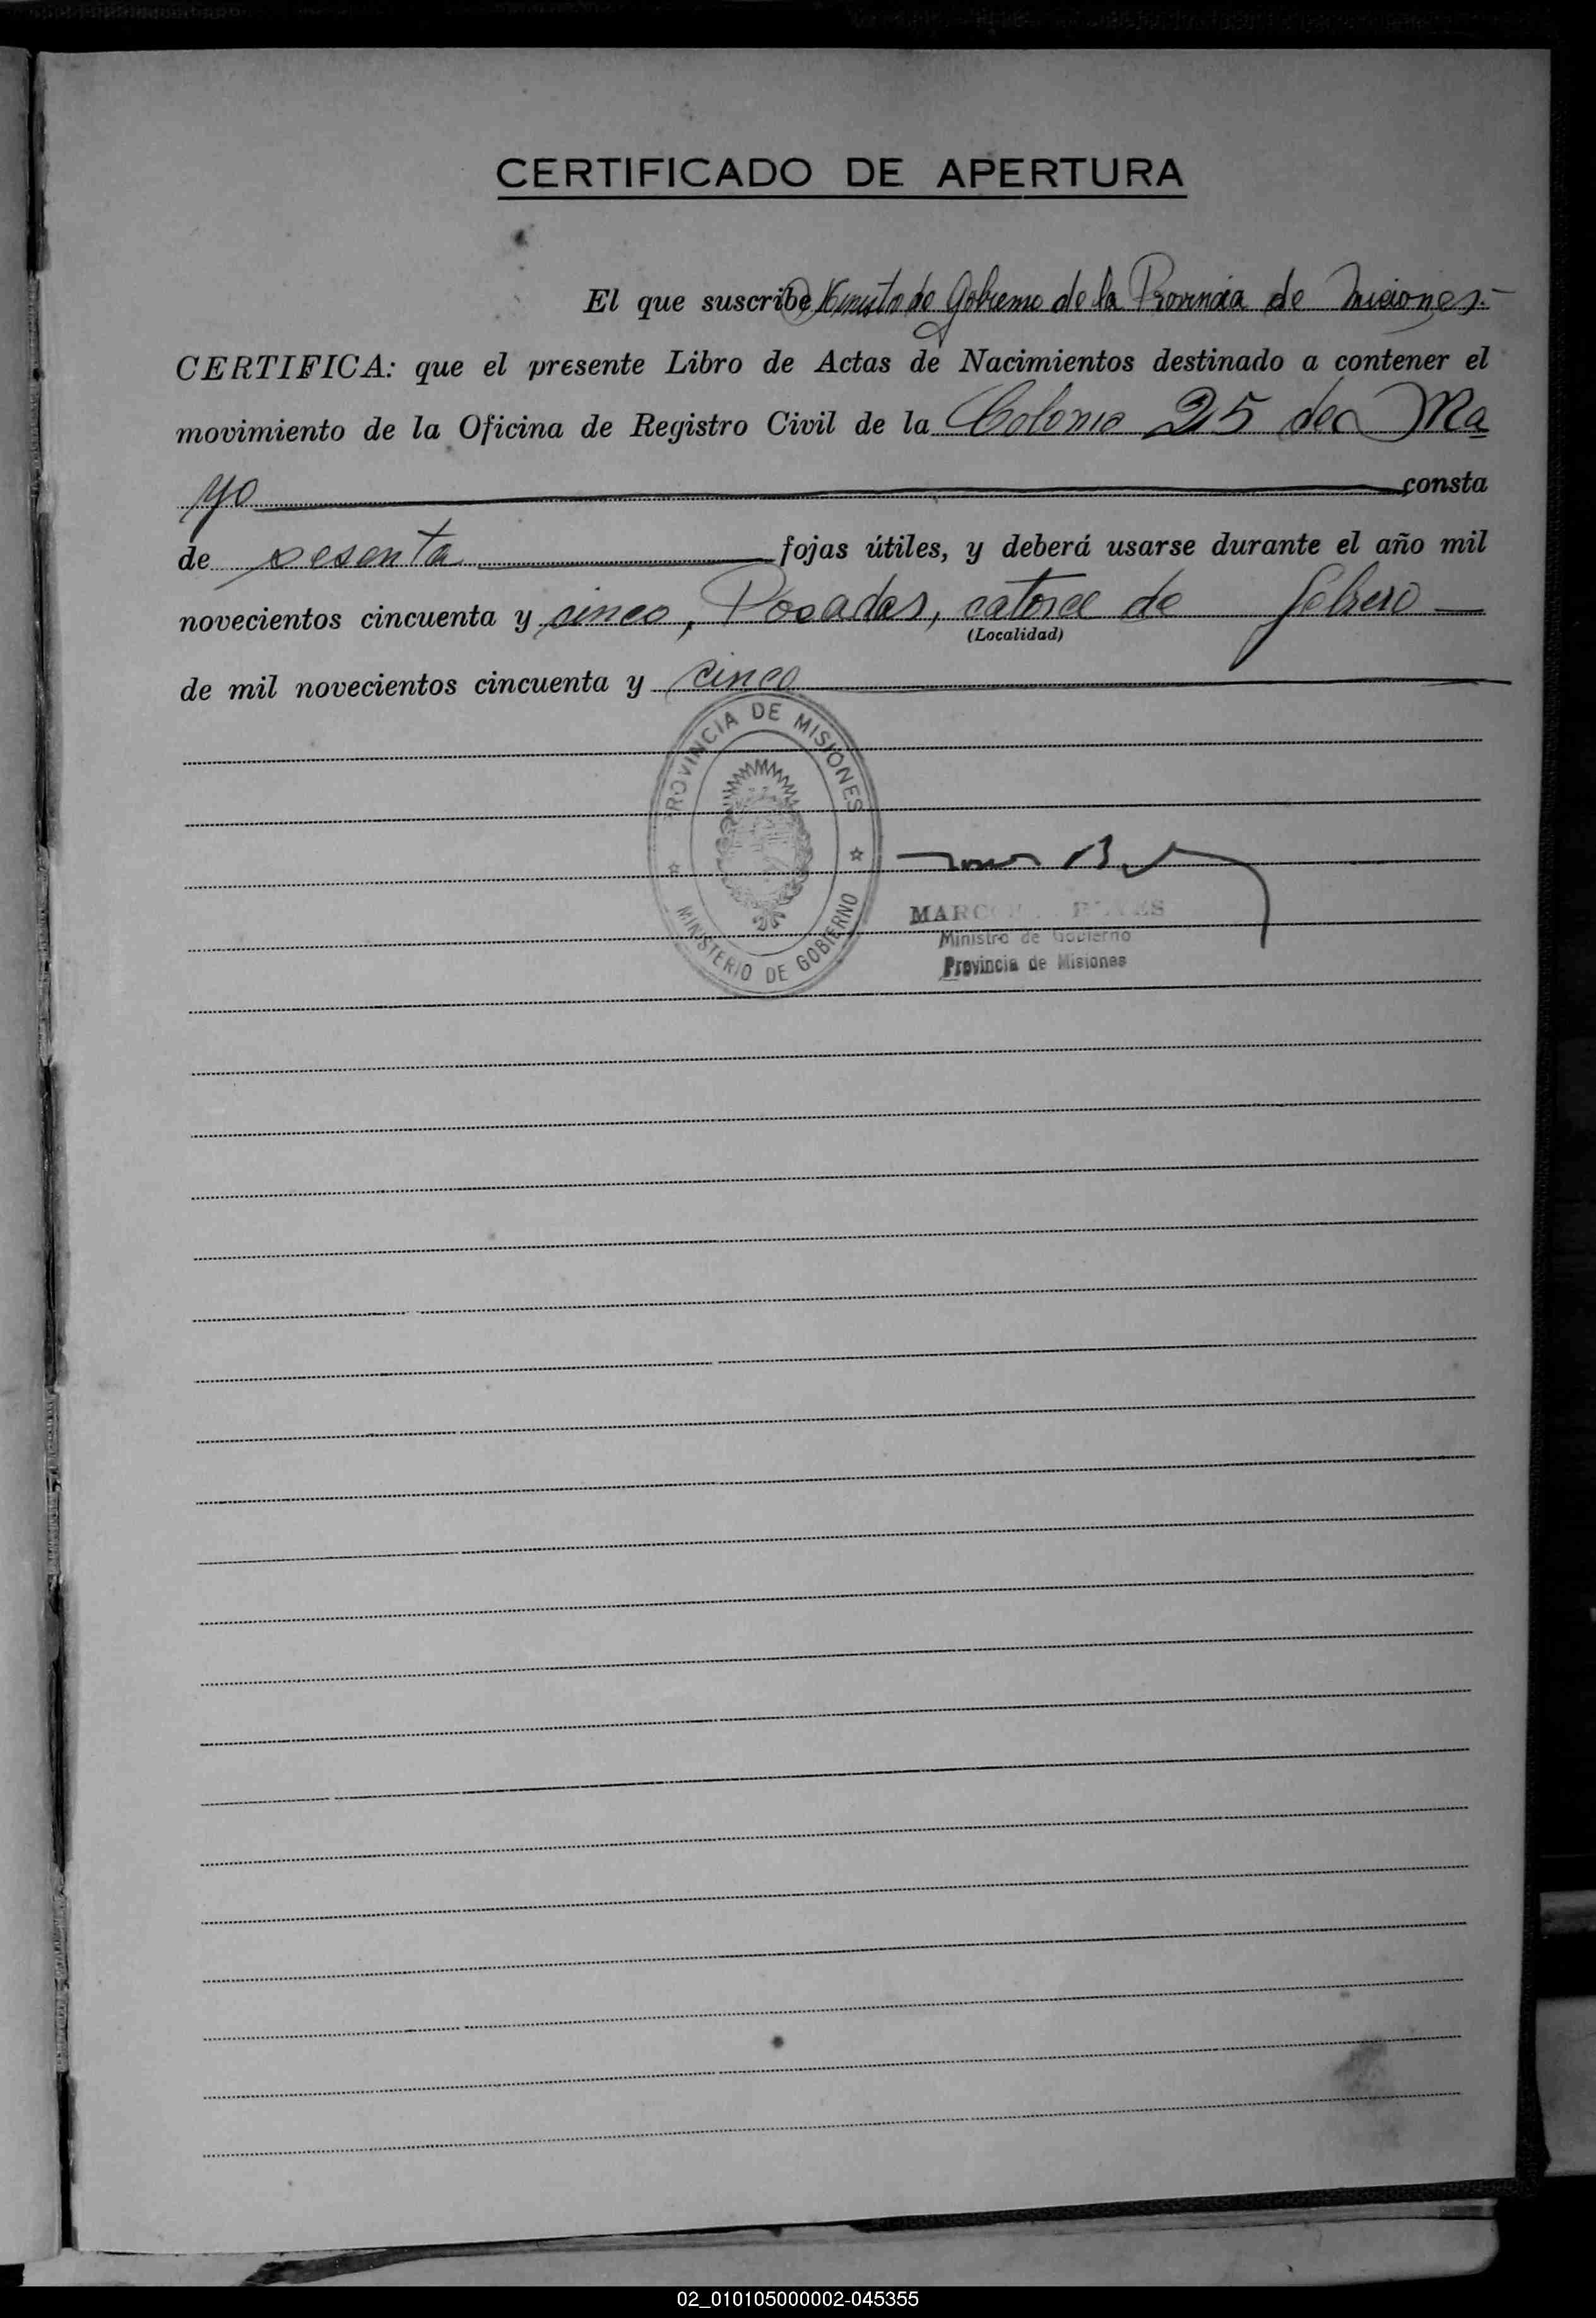 CERTIFICADO DE APERTURA
El que suscribe Ministro de Gobierno de la Provincia de Misiones.-
CERTIFICA: que el presente Libro de Actas de Nacimientos destinado a contener el
movimiento de la Oficina de Registro Civil de la Colonia 25 de Ma
yo consta
de sesenta fojas útiles, y deberá usarse durante el año mil
novecientos cincuenta y cinco, Posadas, catorce de febrero
(Localidad)
de mil novecientos cincuenta y cinco
PROVINCIA DE MISIONES
MINISTERIO DE GOBIERNO
Ministro de Gobierno
Provincia de Misiones
02_010105000002-045355